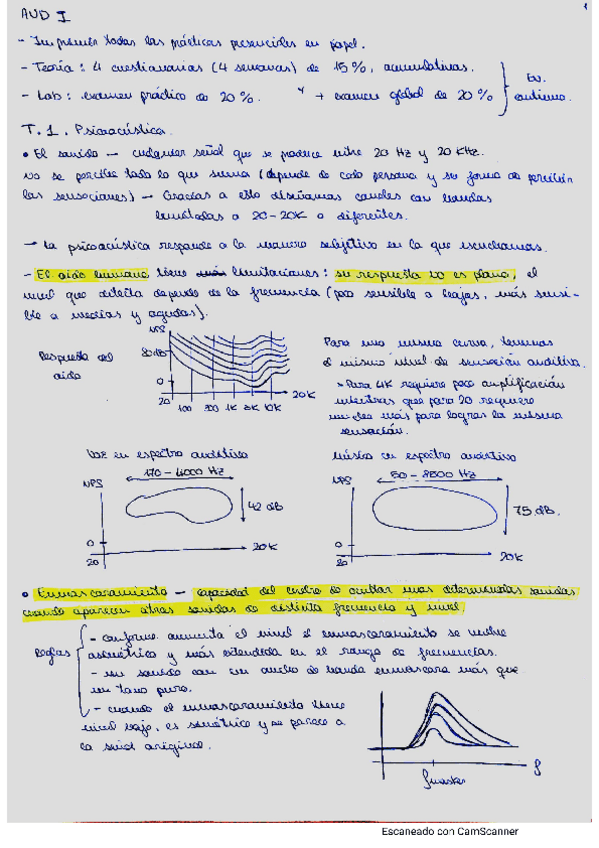 1
AUD I
- Imprimir todas las prácticas presenciales en papel.
- Teoría: 4 cuestionarios (4 semanas) de 15%, acumulativas.
- Lab: examen práctico de 20%. + examen global de 20%
Ev. continua.
T.1. Psicoacústica.
• El sonido — cualquier señal que se produce entre 20 Hz y 20 KHz.
no se percibe todo lo que suena (depende de cada persona y su forma de percibir
las sensaciones) → Gracias a esto diseñamos canales con bandas
limitadas a 20-20K o diferentes.
→ La psicoacústica responde a la manera subjetiva en la que escuchamos.
- El oído humano tiene limitaciones: su respuesta no es plana, el
nivel que detecta depende de la frecuencia (poco sensible a bajas, más sensi-
ble a medias y agudas).
Respuesta del
oido
NPS
80dB
0
20 100 500 1K 5K 10K 20K
Para una misma curva, tenemos
el mismo nivel de sensación auditiva.
* Para 4K requiere poca amplificación
mientras que para 20 requiere
mucho más para lograr la misma
sensación.
Voz en espectro auditivo
170 - 4000 Hz
NPS
42 dB
0
20
20K
Música en espectro auditivo
50 - 8500 Hz
NPS
75 dB.
0
20
20K
• Enmascaramiento — capacidad del cerebro de ocultar unos determinados sonidos
cuando aparecen otros sonidos de distinta frecuencia y nivel.
Reglas
- conforme aumenta el nivel el enmascaramiento se vuelve
asimétrico y más extendido en el rango de frecuencias.
- un sonido con un ancho de banda enmascara más que
un tono puro.
- cuando el enmascaramiento tiene
nivel bajo, es simétrico y se parece a
la señal original.
fmasker
f
Escaneado con CamScanner